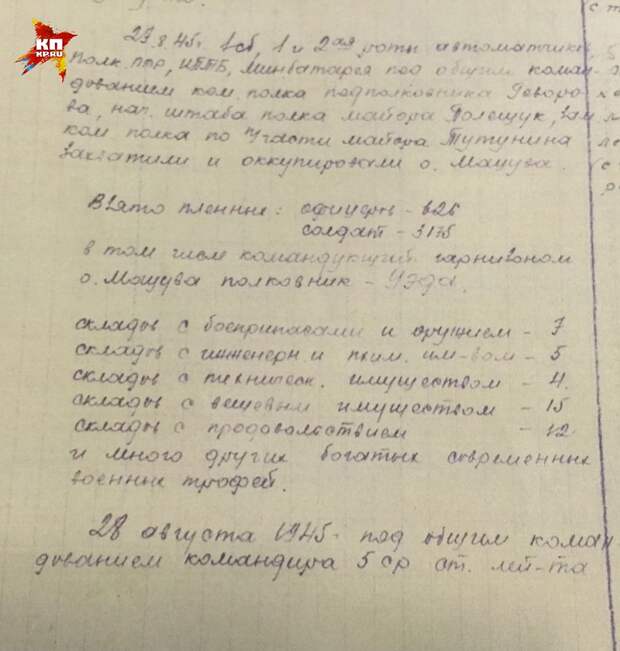 КП
KP.RU
23.8.45г. 1 сб, 1 и 2ая роты автоматчиков,
полк. ппр, минбатарея под общим коман-
дованием ком. полка подполковника Геворо-
ва, нач. штаба полка майора Полещук, зам
ком полка по части майора Тутунина
захватили и оккупировали о. Мацува.
Взято пленные: офицеров -
солдат - 3175
в том числе командующий гарнизоном
о. Мацува полковник - Уэда.
складов с боеприпасами и оружием - 7
складов с инженерн и хим. им-вом - 5
складов с техническ. имуществом - 4.
складов с вещевым имуществом - 15
складов с продовольствием - 12
и много других богатых современных
военных трофей.
28 августа 1945г. под общим коман-
дованием командира 5 ср ст. лей-та